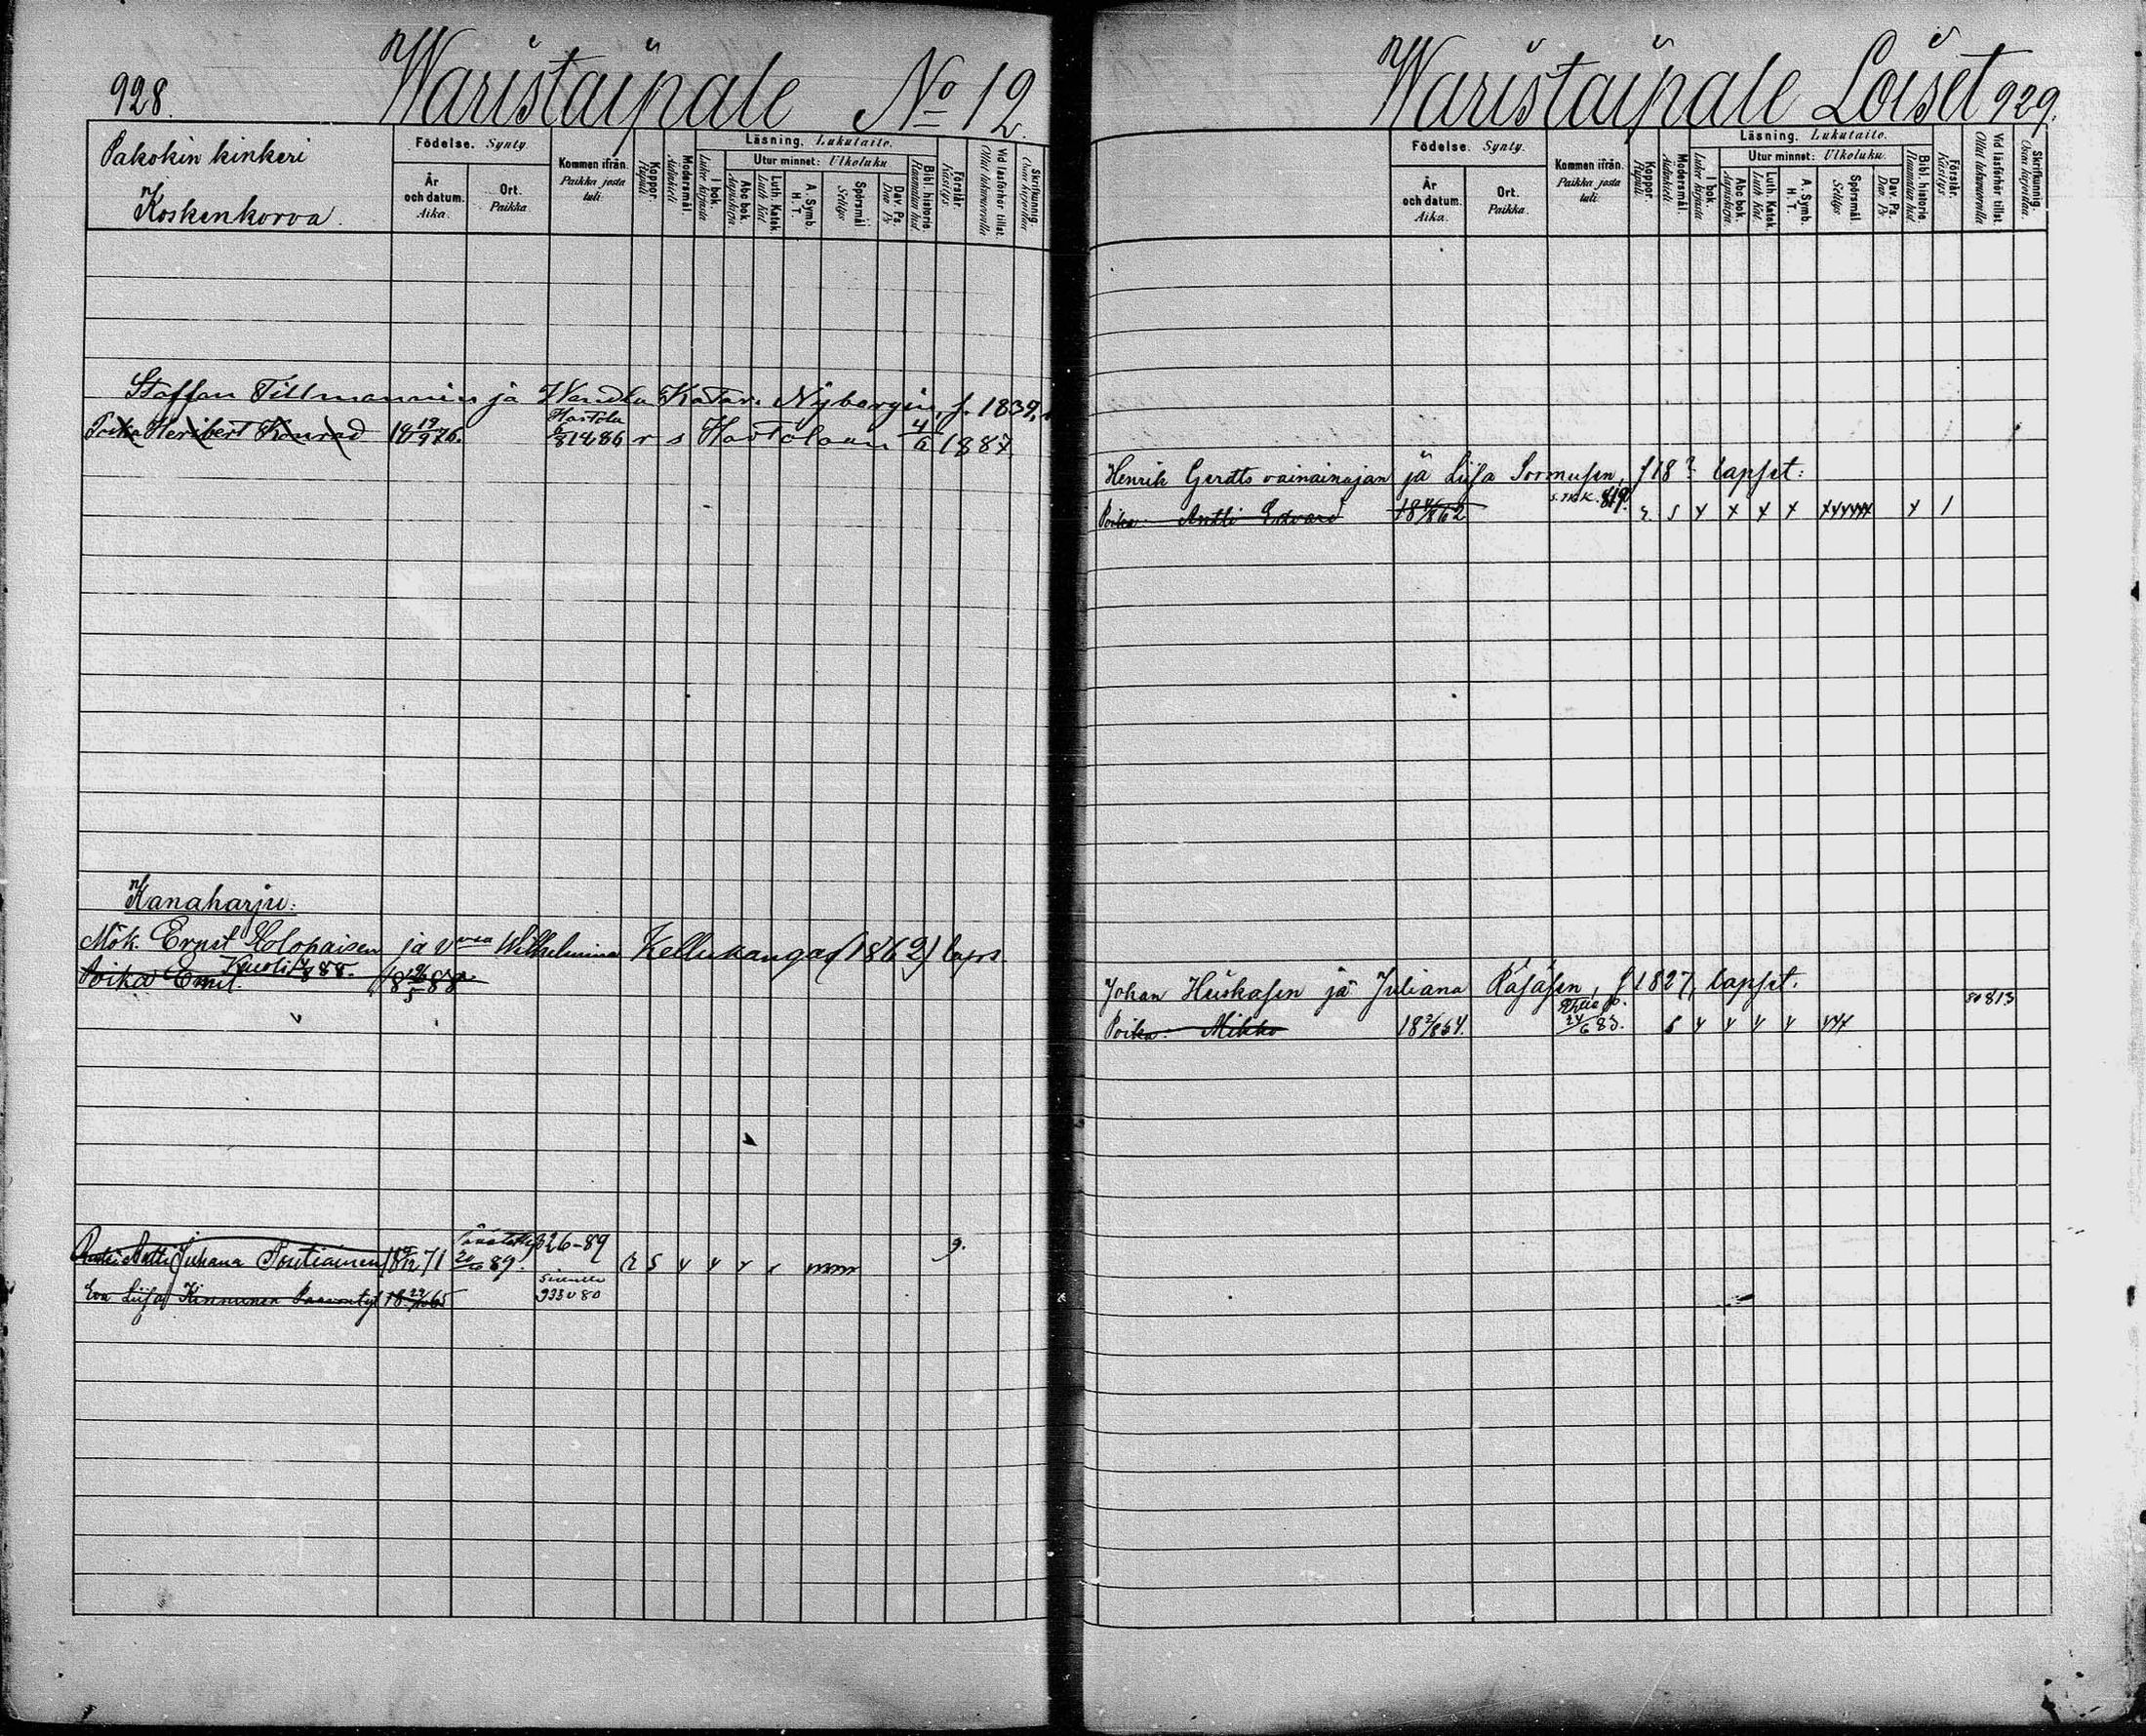 928.
Waristaipale No 12.
Pakokin kinkeri
Koskenkorva.
Födelse. Synty.
År och datum. Aika.
Ort. Paikka.
Kommen ifrån. Paikka josta tuli.
Koppor. Rupuli
Modersmål. Äidinkieli
Läsning. Lukutaito.
I bok. Lukee kirjasta
Utur minnet: Ulkoluku
Abc bok. Aapiskirja.
Luth. Katek. Luth. Kat.
A. Symb. H. T.
Spörsmål Selitys
Dav. Ps. Dav. Ps.
Bibl. historie. Raamatun hist.
Förstår. Käsitys.
Vid läsförhör tillst.
Skrifkunnig. Osaa kirjoittaa
Staffan Tillmannin ja Wendla Katar. Nybergin, f. 1839,
Poika Heribert Konrad 18 19/9 76. Hartola 6/8 1886 r s Hartolaan 4/6 1887.
Kanaharju:
Mök. Ernst Holopaisen ja Wilhelmina Kellukangas (1862) laps
Poika Emil. Kuoli 88. 18 26/5 88
Antti Juhana Tontiainen 71 20 89. 326-89 r s v v v v
9.
Eva Liisa Kinnunen 65 933 v 80
Waristaipale Loiset 929.
Födelse. Synty.
År och datum. Aika.
Ort. Paikka.
Kommen ifrån. Paikka josta tuli.
Koppor. Rupuli
Modersmål. Äidinkieli
Läsning. Lukutaito.
I bok. Lukee kirjasta
Utur minnet: Ulkoluku.
Abc bok. Aapiskirja.
Luth. Katek. Luth. Kat.
A. Symb. H. T.
Spörsmål Selitys
Dav. Ps. Dav. Ps.
Bibl. historie. Raamatun hist.
Förstår. Käsitys.
Vid läsförhör tillst.
Skrifkunnig. Osaa kirjoittaa.
Henrik Gerdts vainainajan ja Liisa Sormusen, f 18? lapset:
Poika Antti Edvard 62 S.R.K. 819. r. s x x x x xxxxxx x 1
Johan Huiskasen ja Juliana Räsäsen, f 1827, lapset.
813
Poika Mikko 18 2/8 54. 24/6 83. s v v v v vvv